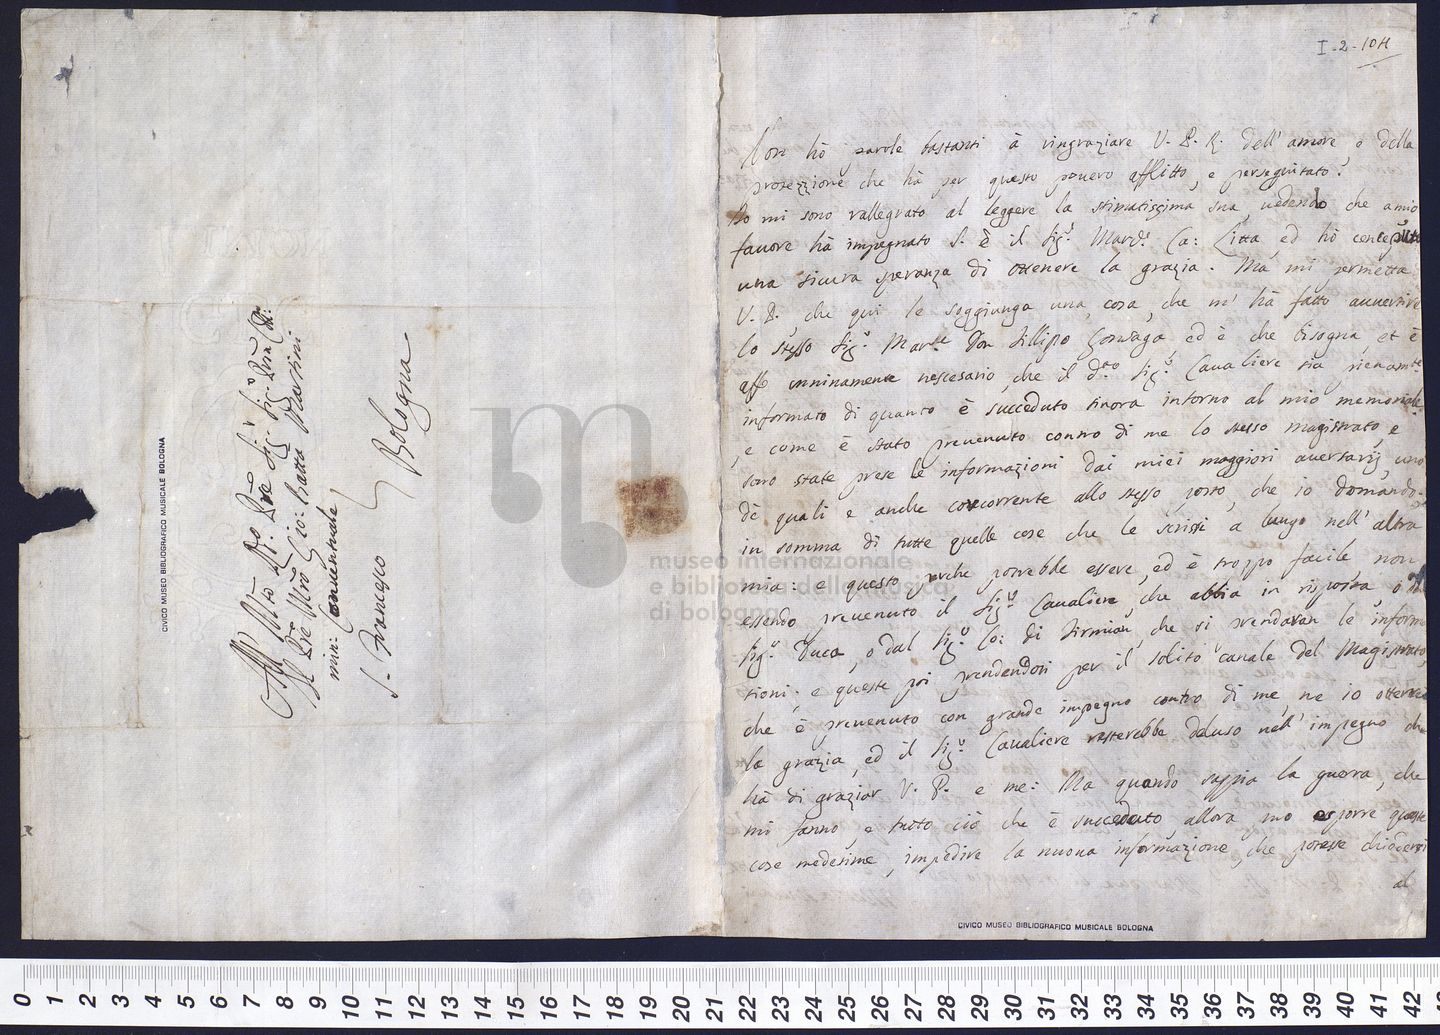 I-2-104
Non hò parole bastanti à ringraziare V. P. R. dell' amore, e della
protezzione che hà per questo pouero afflitto, e perseguitato.
Io mi sono rallegrato al leggere la stimatissima sua, uedendo che a mio
fauore hà impegnato S. E. il Sig.r March.e Ca: Litta, ed hò concepito
una sicura speranza di ottenere la grazia. Ma mi permetta
V. P., che qui le soggiunga una cosa, che m' hà fatto auuertire
lo stesso Sig.r Mar.se Don Fillipo Gonzaga ed è che bisogna, et è
onninamente nescesario, che il d.to Sig.r Caualiere sia pienam.te
informato di quanto è succeduto sinora intorno al mio memoriale
, e come è stato preuenuto contro di me lo stesso magistrato, e
sono state prese le informazioni dai miei maggiori auersarij, uno
de quali e anche concorrente allo stesso posto, che io domando,
in somma di tutte quelle cose che le scrissi a lungo nell' altra
mia: e questo perche potrebbe essere, ed è troppo facile, non
essendo preuenuto il Sig.r Caualiere, che abbia in risposta, o
Sig.r Duca, o dal Sig.r Co: di Firmian, che si prendaran le inform
tioni; e queste poi prendendosi per il solito canale del Magistrato,
che è preuenuto con grande impegno contro di me, ne io otterrei
la grazia, ed il Sig.r Caualiere resterebbe deluso nell' impegno che
hà di graziar V. P. e me: Ma quando sappia la guerra, che
mi fanno, e tutto ciò che è succeduto, allora può esporre queste
cose medesime, impedire la nuova informazione, che potesse chiedersi
al
All' Mto Rdo Pre Sig.r Sig.r
Il Pre Mro Gio: Batta Martini
min: Conuentuale
S. Francesco Bologna
CIVICO MUSEO BIBLIOGRAFICO MUSICALE BOLOGNA
CIVICO MUSEO BIBLIOGRAFICO MUSICALE BOLOGNA
museo internazionale
e biblioteca della musica
di bologna
0 1 2 3 4 5 6 7 8 9 10 11 12 13 14 15 16 17 18 19 20 21 22 23 24 25 26 27 28 29 30 31 32 33 34 35 36 37 38 39 40 41 42